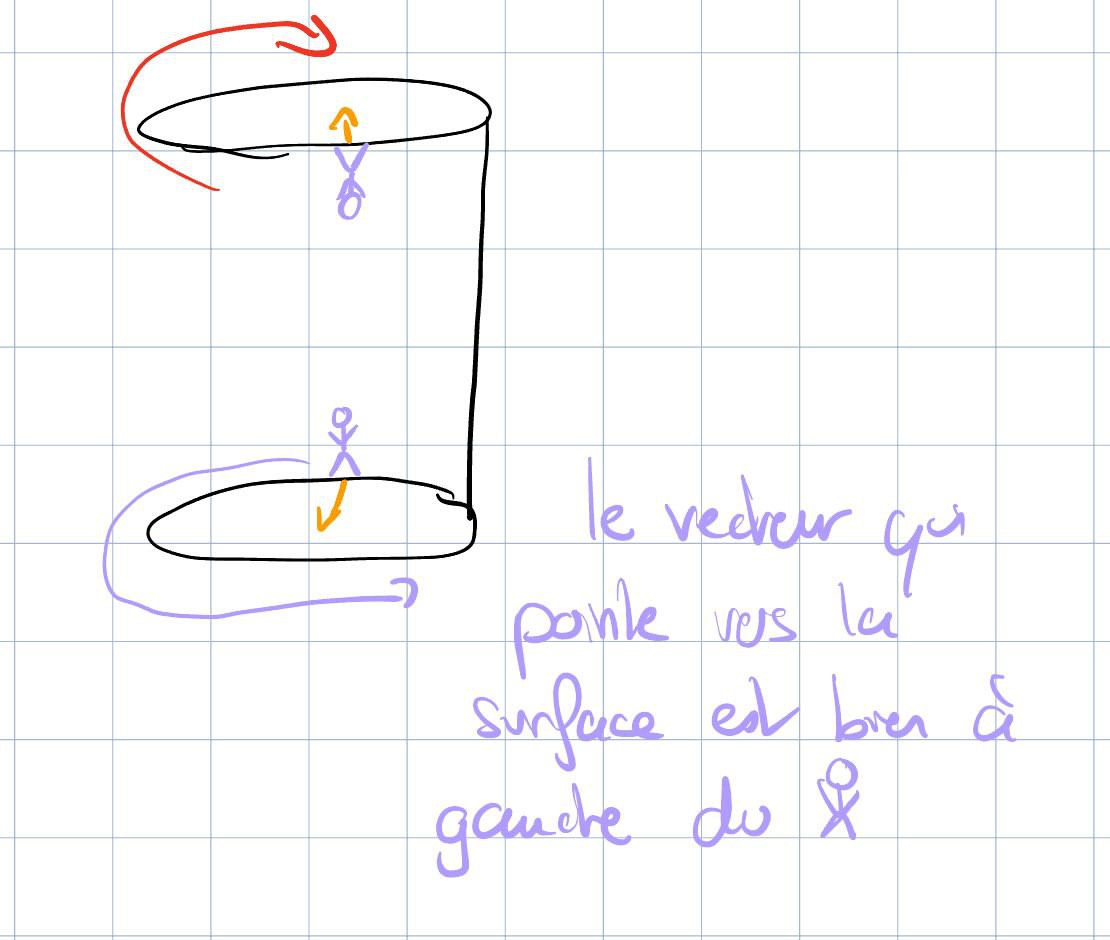 le vecteur qui
pointe vers la
surface est bien à
gauche du